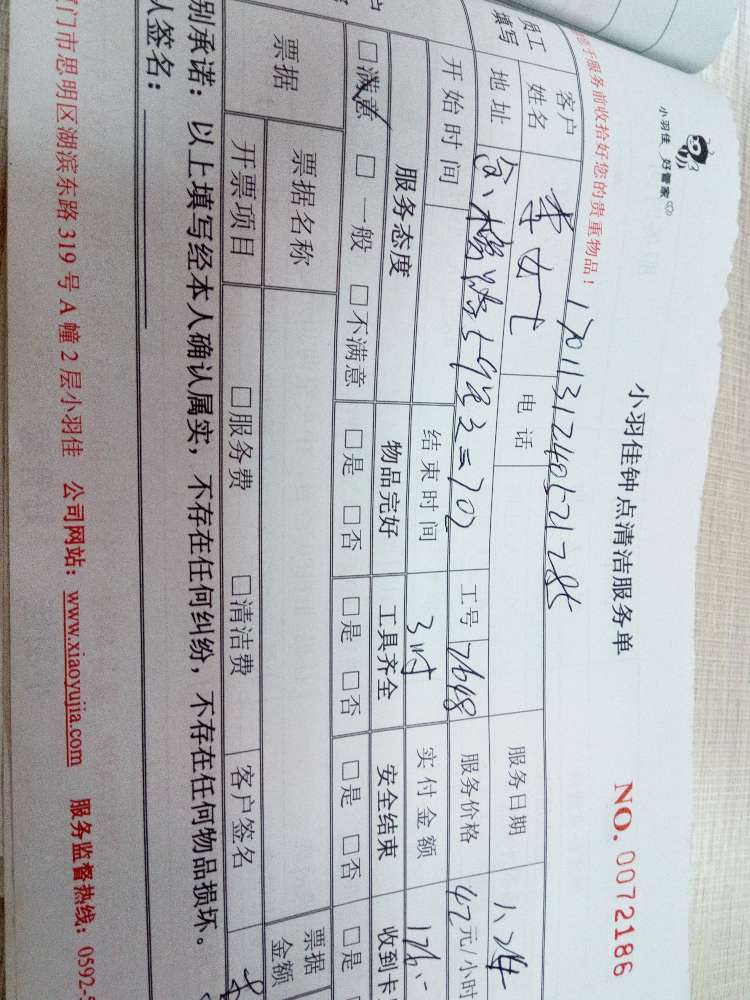 小羽佳 好管家
小羽佳钟点清洁服务单
NO. 0072186
于服务前收拾好您的贵重物品!
员工
填写
客户
姓名
李女士
电话
服务日期
地址
工号
7648
服务价格
47元/小时
开始时间
结束时间
3时
实付金额
服务态度
物品完好
工具齐全
安全结束
收到卡
□满意 □一般 □不满意
□是 □否
□是 □否
□是 □否
□是
票据
票据名称
票据
金额
开票项目
□服务费 □清洁费
客户签名
别承诺:以上填写经本人确认属实,不存在任何纠纷,不存在任何物品损坏。
人签名:
门市思明区湖滨东路 319 号 A 幢 2 层小羽佳 公司网站:www.xiaoyujia.com 服务监督热线:0592-5